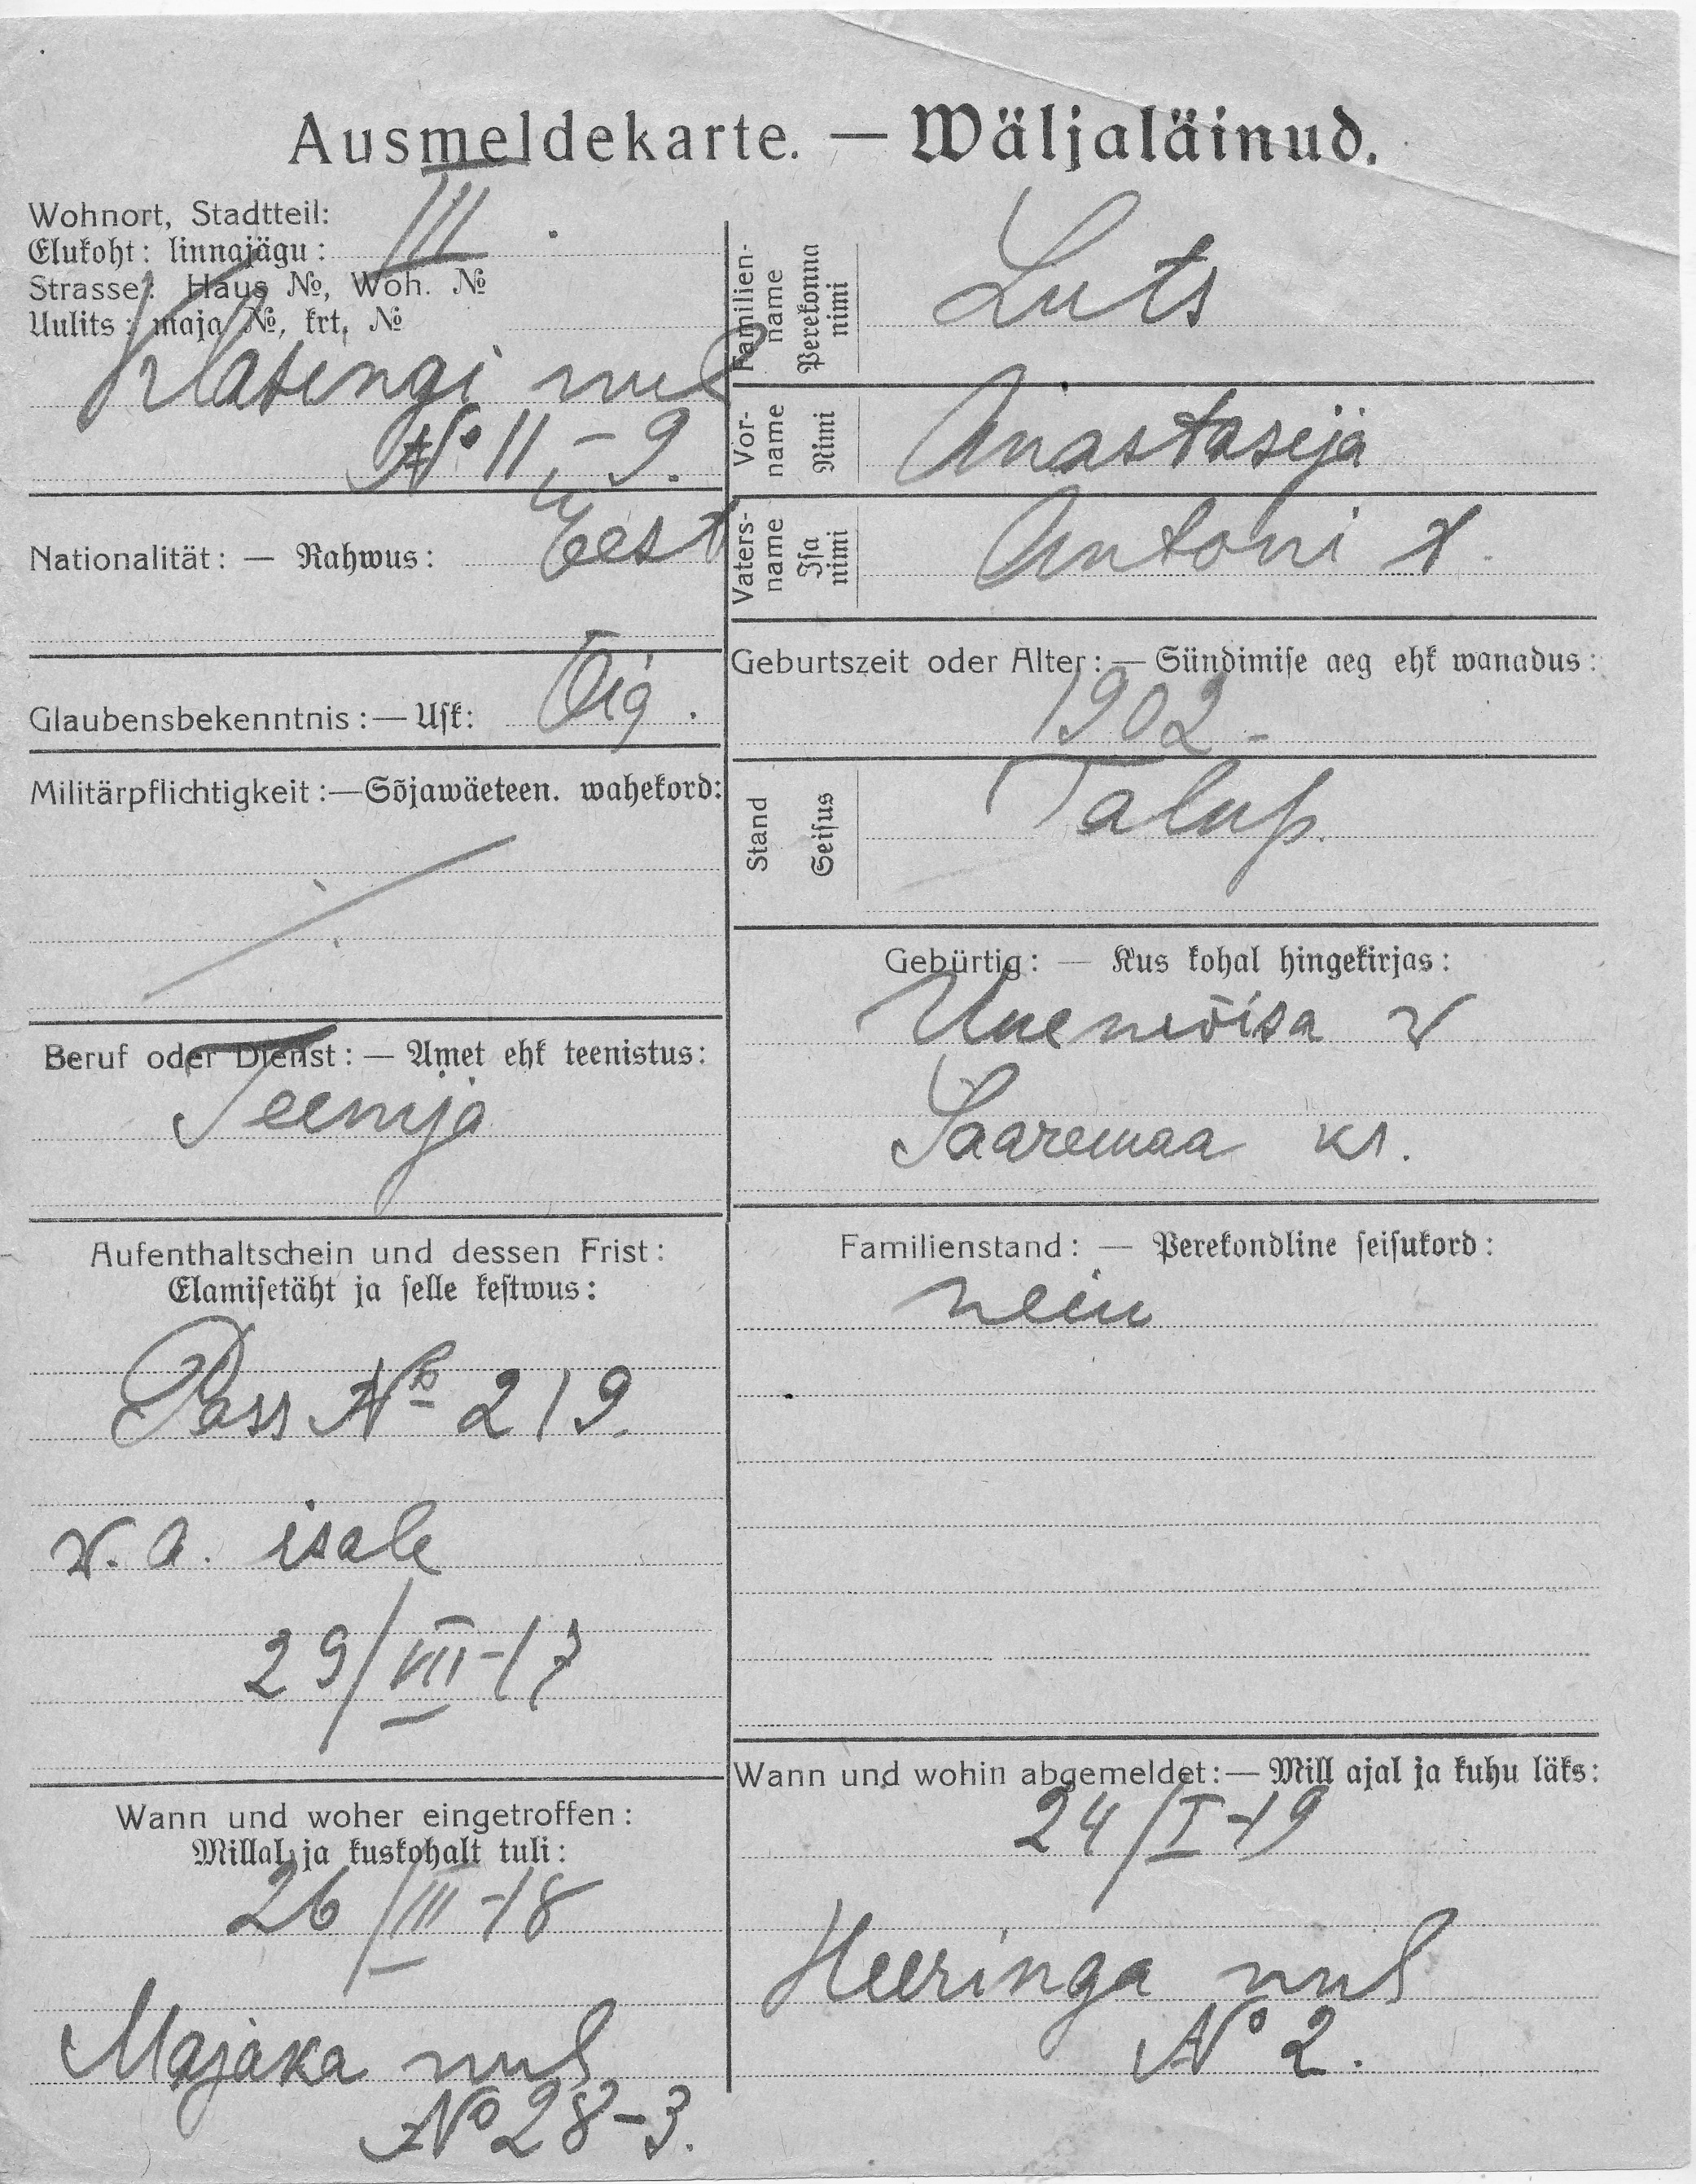 Ausmeldekarte. — Wäljaläinud.
Wohnort, Stadtteil:
Elukoht: linnajägu: III
Strasse: Haus №, Woh. №
Uulits: maja №, krt, №
№ 11 – 9.
Nationalität: — Rahwus: Eest
Glaubensbekenntnis: — Usk: Õig.
Militärpflichtigkeit: — Sõjawäeteen. wahekord:
Beruf oder Dienst: — Amet ehk teenistus:
Teenija
Aufenthaltschein und dessen Frist:
Elamisetäht ja selle kestwus:
Pass № 219.
v. a. isale
29/VIII-17
Wann und woher eingetroffen:
Millal ja kuskohalt tuli:
26/III-18
Majaka uul
№ 28-3.
Familien-
name
Perekonna
nimi
Luts
Vor-
name
Nimi
Anastasija
Vaters-
name
Isa
nimi
Antoni t.
Geburtszeit oder Alter: — Sündimise aeg ehk wanadus:
1902 -
Stand
Seisus
Talup.
Gebürtig: — Kus kohal hingekirjas:
Uuemõisa v
Saaremaa kr.
Familienstand: — Perekondline seisukord:
neiu
Wann und wohin abgemeldet: — Mill ajal ja kuhu läks:
24/I-19
Heeringa uul
№ 2.